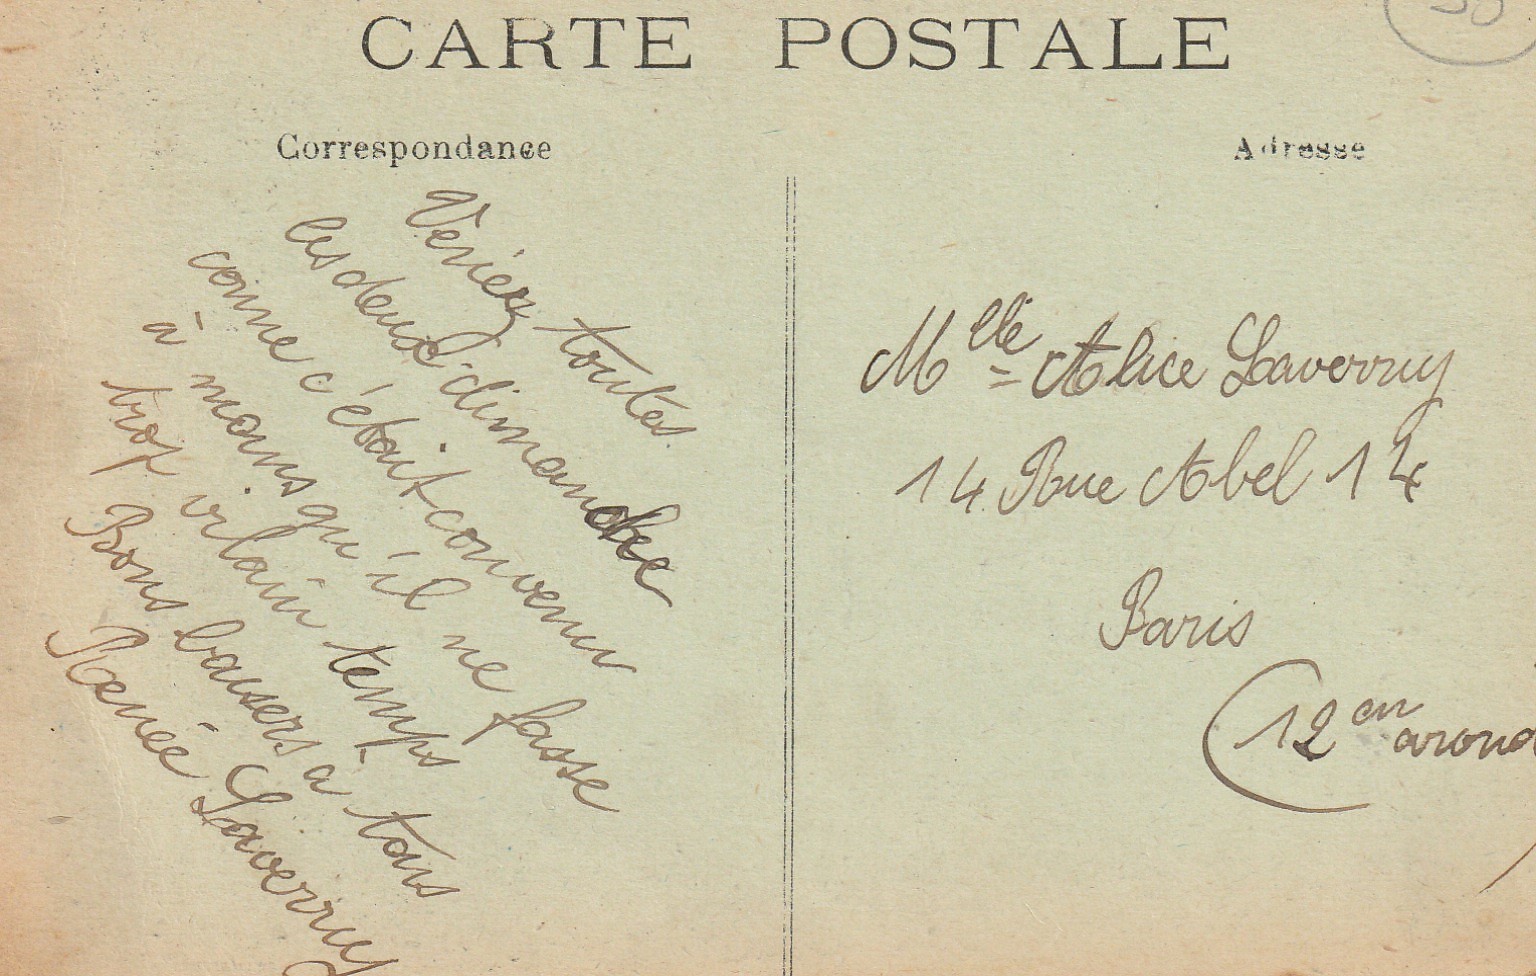 CARTE POSTALE
Correspondance
Adresse
Veniez toutes
les deux dimanche
comme c'était convenu
à moins qu'il ne fasse
trop vilain temps
Bons baisers à tous
Renée Laverruy
Mlle Alice Laverruy
14 Rue Abel 14
Paris
(12en arond